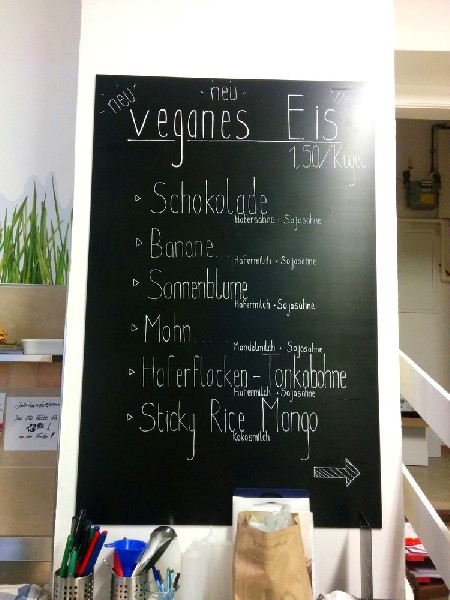 neu neu
veganes Eis
1,50/Kugel
Schokolade
Hafersahne + Sojasahne
Banane...
Hafermilch + Sojasahne
Sonnenblume
Hafermilch + Sojasahne
Mohn....
Mandelmilch + Sojasahne
Haferflocken-Tonkabohne
Hafermilch + Sojasahne
Sticky Rice Mango
Kokosmilch